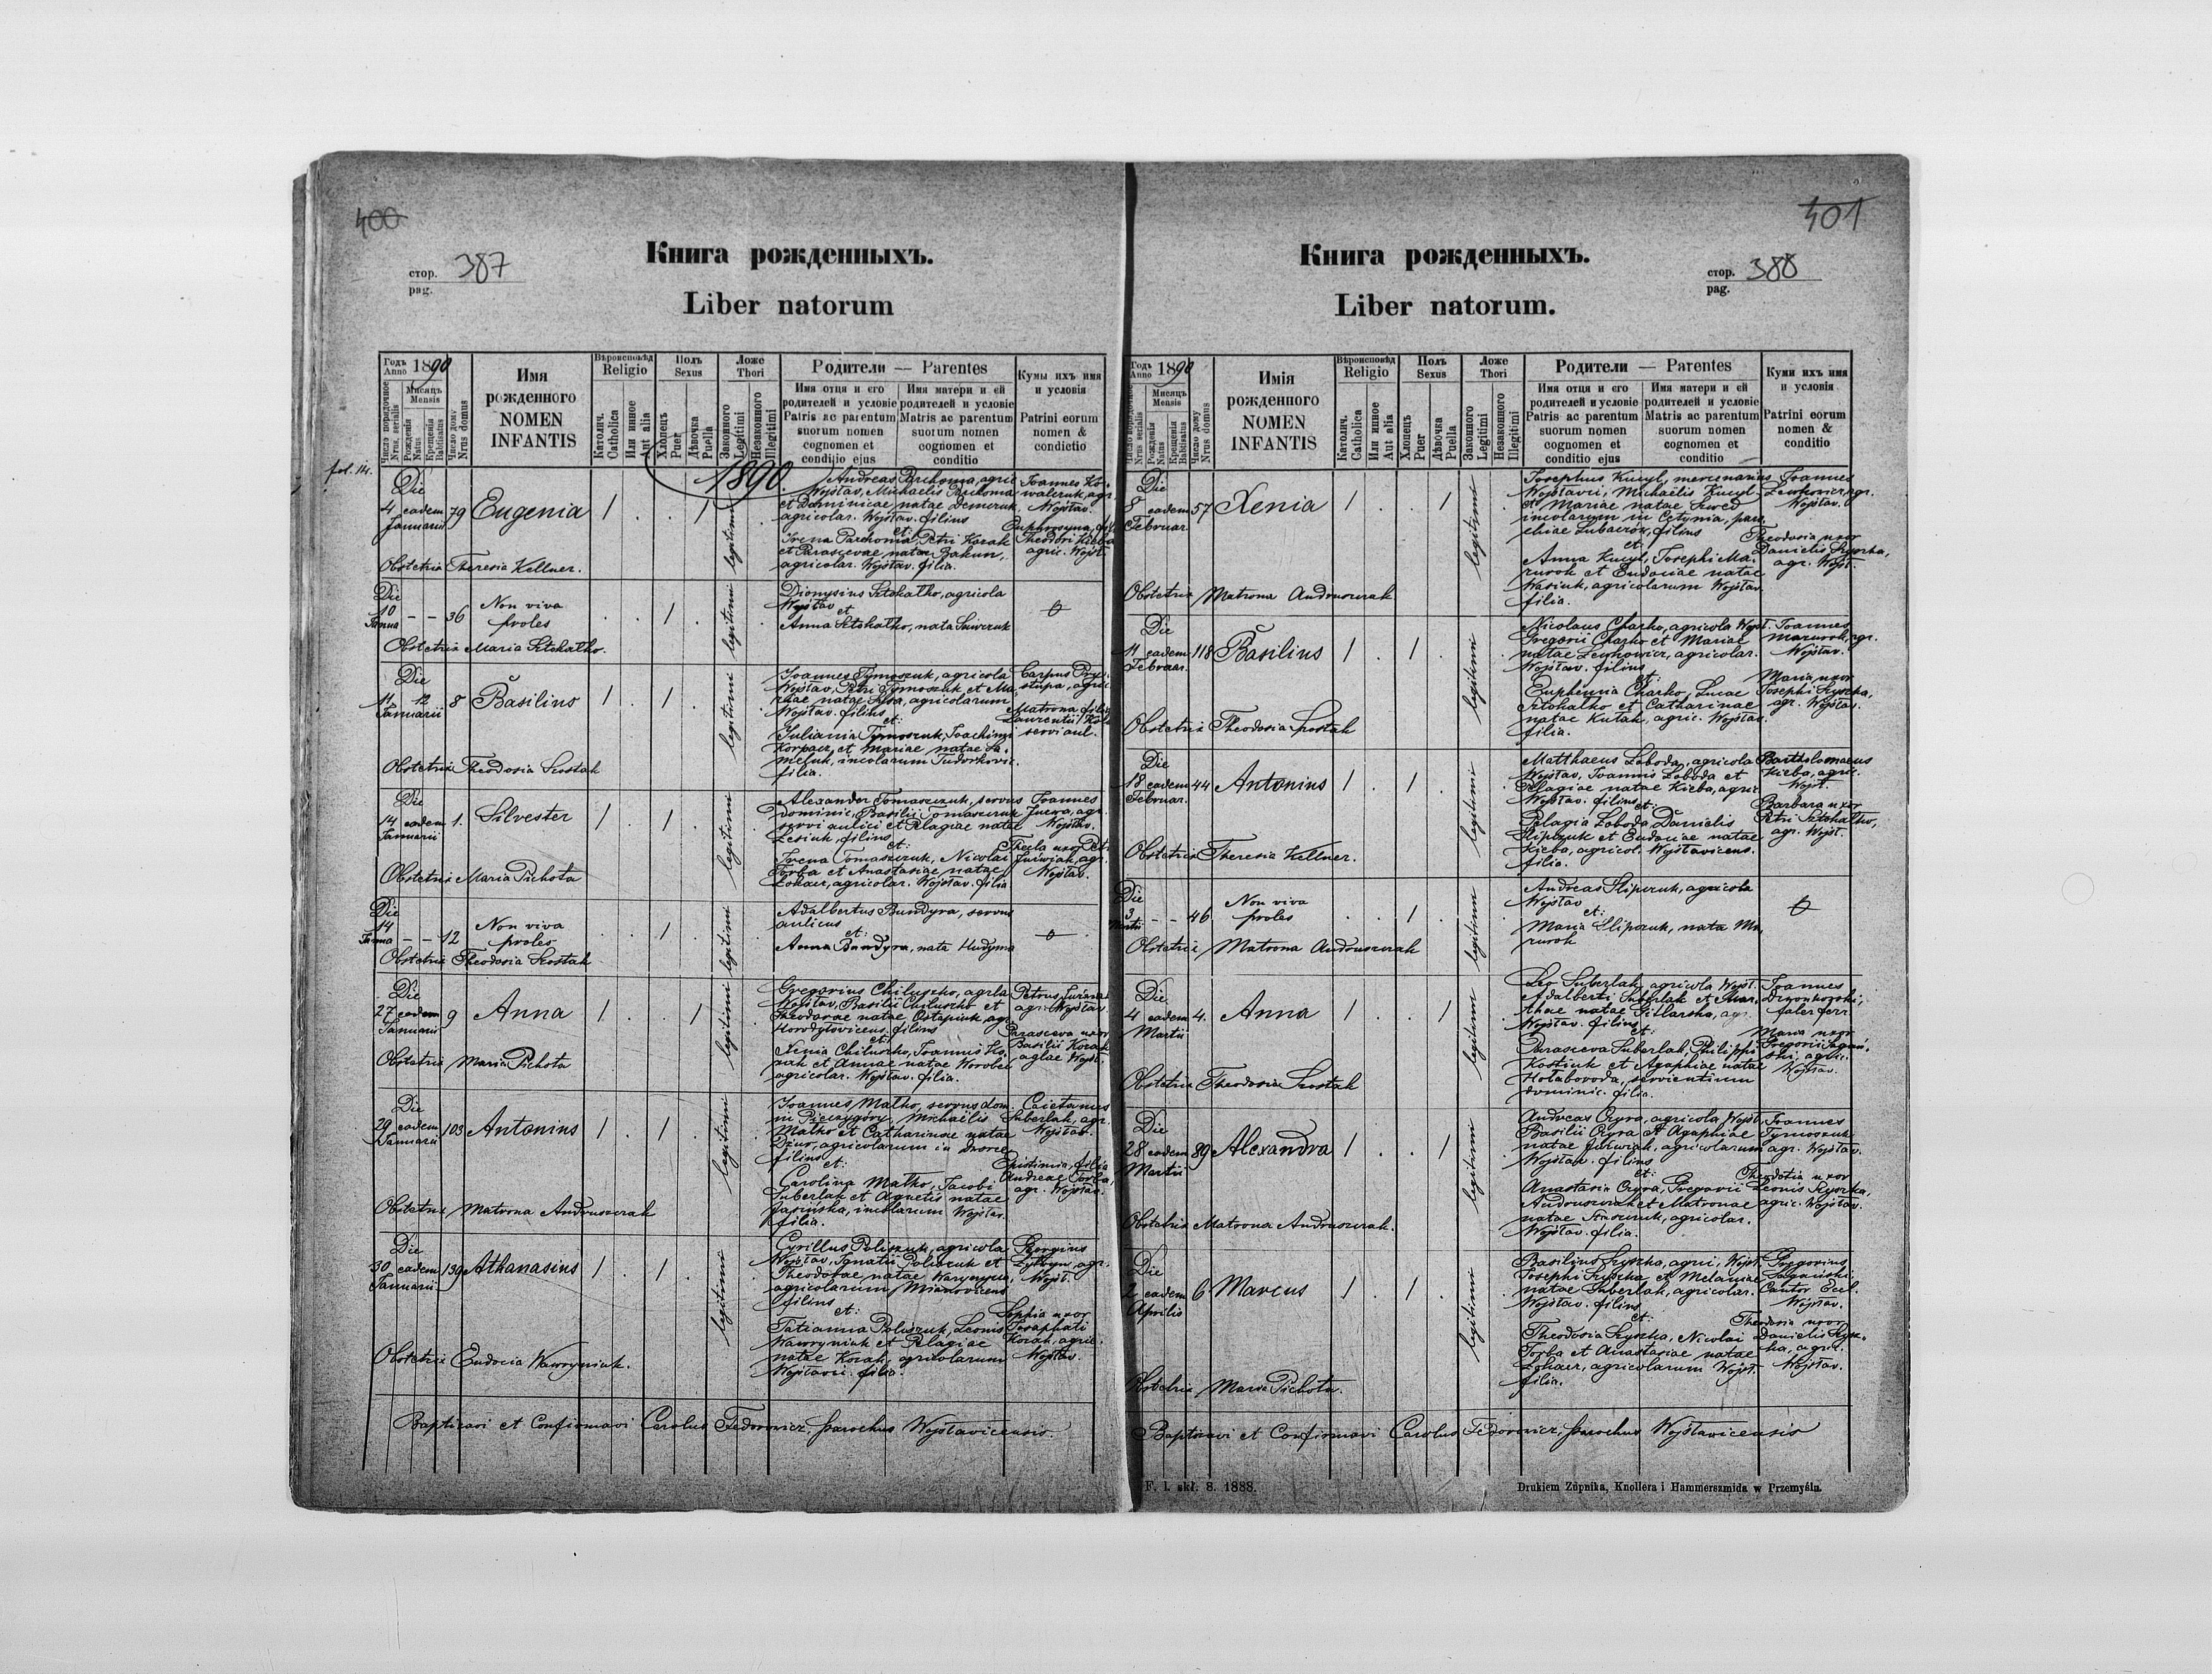 400
стор. 387
pag.
Книга рожденныхъ.
Liber natorum
Годъ 1890
Anno
Мѣсяцъ
Mensis
Число порядочное
Nrus. serialis
Рожденія
Natus
Крещенія
Babtisatus
Число дому
Nrus domus
Имя
рожденного
NOMEN
INFANTIS
Вѣроисповѣд
Religio
Католич.
Catholica
Или инное
Aut alia
Полъ
Sexus
Хлопецъ
Puer
Дѣвочка
Puella
Ложе
Thori
Законного
Legitimi
Незаконного
Illegitimi
Родители — Parentes
Имя отця и его
родителей и условіе
Patris ac parentum
suorum nomen
cognomen et
conditio ejus
Имя матери и ей
родителей и условіе
Matris ac parentum
suorum nomen
cognomen et
conditio
Кумы ихъ имя
и условія
Patrini eorum
nomen &
condictio
fol. 14.
1890.
Die
4 eadem 79 Eugenia 1 . . 1 legitimi
Januarii
Andreas Parchoma, agric
Wojsław, Michaelis Parchoma
et Dominicae natae Demczuk
agricolar. Wojsław. filius
et:
Irena Parchoma, Petri Kozak
et Parascevae natae Bakun,
agricolar. Wojsław. filia.
Joannes Ko-
walczuk, agr.
Wojsław.
Euphrosyna, fil.
Theodori Kieba
agric. Wojsł.
Obstetrix Theresia Kellner.
Die
10 - - 36 Non viva . . 1 . legitimi
Janua proles
Dionysius Sztokałko, agricola
Wojsław
et
Anna Sztokałko, nata
Obstetrix Maria Sztokałko.
Die
11 12 8 Basilius 1 . 1 . legitimi
Januarii
Joannes Tymoszuk, agricola
Wojsław, Petri Tymoszuk et Ma-
agricolarum
Wojsław. filius
et:
Juliania Tymoszuk, Joachimi
Korpacz, et Mariae natae Sa-
meluk, incolarum Tudorkovic.
filia.
Carpus Przy-
stupa, agric
Matrona filia
Laurentii
servi aul.
Obstetrix Theodosia Szostak
Die
14 eadem 1. Silvester 1 . 1 . legitimi
Januarii
Alexander Tomaszczuk, servus
dominic, Basilii Tomaszczuk
servi aulici et Pelagiae natae
Lesiuk, filius
et:
Irena Tomaszczuk, Nicolai
Torba et Anastasiae natae
Łohacz, agricolar. Wojsław. filia
Joannes
agr.
Wojsław.
Thecla uxor
agr.
Wojsław.
Obstetrix Maria Pichota
Die
14 - - 12 Non viva . . 1 . legitimi
Janua proles
Adalbertus Bundyra, servus
aulicus
et:
Anna Bundyra, nata Hudyma
Obstetrix Theodosia Szostak
Die
27 eadem 9 Anna 1 . . 1 legitimi
Januarii
Gregorius Chiluszko, agrla
Wojsław, Basilii Chiluszko et
Theodorae natae Ostapiuk, agr.
Horodytovicens. filius
et:
Xenia Chiluszko, Joannis Ko-
zak et Annae natae Worobec
agricolar. Wojsław. filia.
Petrus
agr. Wojsław
Parasceva uxor
Basilii Kozak
aglae Wojsł.
Obstetrix Maria Pichota
Die
29 eadem 103 Antonius 1 . 1 . legitimi
Januarii
Joannes Matko, servus dom.
in Pieczygóry, Michaëlis
Matko et Catharinae natae
Dziur, agricolarum in
filius
et:
Carolina Matko, Jacobi
Suberlak et Agnetis natae
Jasińska, incolarum Wojsław
filia.
Caietanus
Suberlak, agr.
Wojsław.
Epistimia, filia
Andreae Torba,
agr. Wojsław.
Obstetrix Matrona Andruszczak
Die
30 eadem 139 Athanasius 1 . 1 . legitimi
Januarii
Cyrillus Poliszuk, agricola
Wojsław, Ignatii Poliszuk et
Theodorae, natae
agricolarum Mianovicens
filius
et:
Tatianna Poliszuk, Leonis
Wawryniuk et Pelagiae
natae Kozak, agricolarum
Wojsławic. filia.
Georgius
agr.
Wojsł.
Sophia uxor
Josaphati
Kozak, agric.
Wojsław.
Obstetrix Eudocia Wawryniuk.
Baptizavi et Confirmavi Carolus Fedorowicz, parochus Wojsławicensis.
401
стор. 388
pag.
Книга рожденныхъ.
Liber natorum.
Годъ 1890
Anno
Мѣсяцъ
Mensis
Число порядочное
Nrus serialis
Рожденія
Natus
Крещенія
Babtisatus
Число дому
Nrus domus
Имія
рожденного
NOMEN
INFANTIS
Вѣроисповѣд
Religio
Католич.
Catholica
Или инное
Aut alia
Полъ
Sexus
Хлопецъ
Puer
Дѣвочка
Puella
Ложе
Thori
Законного
Legitimi
Незаконного
Illegitimi
Родители — Parentes
Имя отця и его
родителей и условіе
Patris ac parentum
suorum nomen
cognomen et
conditio ejus
Имя матери и ей
родителей и условіе
Matris ac parentum
suorum nomen
cognomen et
conditio
Куми ихъ имя
и условія
Patrini eorum
nomen &
conditio
Die
8 eadem 57 Xenia 1 . . 1 legitimi
Februar.
Josephus Kucyl, mercenarius
Wojsławic, Michaëlis Kucyl
et Mariae natae Szwed
incolarum in Cetynia, paro-
chiae filius
et
Anna Kucyl, Josephi Ma-
zurok et Eudociae natae
Wasiuk, agricolarum Wojsław.
filia.
Joannes
Lewkowicz, agr.
Wojsław.
Theodosia uxor
Danielis Szyszka,
agr. Wojsł.
Obstetrix Matrona Andruszczak
Die
11 eadem 118 Basilius 1 . 1 . legitimi
Februar.
Nicolaus Charko, agricola Wojsł.
Gregorii Charko et Mariae
natae Lewkowicz, agricolar.
Wojsław. filius
et:
Euphemia Charko, Lucae
Sztokałko et Catharinae
natae Kutak, agric. Wojsław.
filia.
Joannes
Mazurok, agr.
Wojsław.
Maria uxor
Josephi Szyszka,
agr. Wojsław.
Obstetrix Theodosia Szostak
Die
18 eadem 44 Antonius 1 . 1 . legitimi
Februar.
Matthaeus Łoboda, agricola
Wojsław, Joannis Łoboda et
Pelagiae natae Kieba, agric
Wojsław. filius
et:
Pelagia Łoboda Danielis
Slipczuk et Eudociae natae
Kieba, agricol. Wojsławicens.
filia.
Bartholomaeus
Kieba, agric.
Wojsł.
Barbara uxor
Petri Sztokałko,
agr. Wojsł.
Obstetrix Theresia Kellner.
Die
3 - - 46 Non viva . . 1 . legitimi
Martii proles
Andreas Slipczuk, agricola
Wojsław
et:
Maria Slipczuk, nata Ma-
zurok
Obstetrix Matrona Andruszczak
Die
4 eadem 4. Anna 1 . . 1 legitimi
Martii
Leo Suberlak, agricola Wojsł.
Adalberti Suberlak et Mar-
thae natae Gillarska, agr.
Wojsław. filius
et:
Parasceva Suberlak, Philippi
Kostiuk et Agaphiae natae
Hołaboroda, servientium
dominic. filia.
Joannes
Dzwonkowski,
faber ferr
Maria uxor
Gregorii Sagań-
ski, agric.
Wojsław.
Obstetrix Theodosia Szostak
Die
28 eadem 89 Alexandra 1 . . 1 legitimi
Martii
Andreas Ozyra, agricola Wojsł.
Basilii Ozyra et Agaphiae
natae agricolarum
Wojsław. filius
et:
Anastasia Ozyra, Gregorii
Andruszczak et Matronae
natae agricolar.
Wojsław. filia.
Joannes
Tymoszuk
agr. Wojsław.
Theodosia uxor
Leonis Szyszka,
agric. Wojsław.
Obstetrix Matrona Andruszczak.
Die
2 eadem 6 Marcus 1 . 1 . legitimi
Aprilis
Basilius Szyszka, agric, Wojsł.
Josephi Szyszka et Melaniae
natae Suberlak, agricolar.
Wojsław. filius
et:
Theodosia Szyszka, Nicolai
Torba et Anastasiae natae
Łohacz, agricolarum Wojsł.
filia.
Gregorius
Sagański
Cantor Eccl.
Wojsław.
Theodosia uxor
Danielis Szysz-
ka, agric.
Wojsław.
Obstetrix Maria Pichota.
Baptizavi et Confirmavi Carolus Fedorowicz, parochus Wojsławicensis
F. 1. skł. 8. 1888.
Drukiem Żupnika, Knollera i Hammerszmida w Przemyślu.